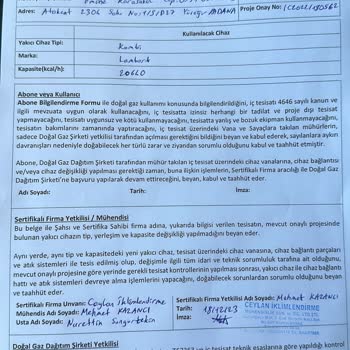 Adres: Atakent 2306 Sok. No: Yüreğir ADANA Proje Onay No:
Kullanılacak Cihaz
Yakıcı Cihaz Tipi: Kombi
Marka:
Kapasite(kcal/h): 20640
Abone veya Kullanıcı
Abone Bilgilendirme Formu ile doğal gaz kullanımı konusunda bilgilendirildiğini, iç tesisatı 4646 sayılı kanun ve
ilgili mevzuata uygun olarak kullanacağını, iç tesisatta izinsiz herhangi bir tadilat ve proje dışı tesisat
yapmayacağını, tesisatı uygunsuz ve kötü kullanmayacağını, tesisatta yanlış ve bozuk ekipman kullanmayacağını,
tesisatın bakımlarını zamanında yaptıracağını, iç tesisat üzerindeki Vana ve Sayaçlara takılan mühürlerin,
sadece Doğal Gaz yetkilisi tarafından açılması gerektiğini bildiğini, beyan ve kabul ederek, sayılanlara aykırı
davranışları nedeniyle doğabilecek her türlü zarar ve ziyandan sorumlu olduğunu kabul ve taahhüt etmiştir.
Abone, Doğal Gaz Dağıtım Şirketi tarafından mühür takılan iç tesisat üzerindeki cihaz vanalarına, cihaz bağlantısı
ve/veya cihaz değişikliği yapılması gerektiği zaman, buna ilişkin işlemlerin, Sertifikalı Firma aracılığı ile Doğal Gaz
Dağıtım Şirketi'ne başvuru yapılarak devam ettireceğini, beyan, kabul ve taahhüt eder.
Adı Soyadı: Tarih: İmza:
Sertifikalı Firma Yetkilisi / Mühendisi
Bu belge ile Şahsı ve Sertifika Sahibi firma adına, yukarıda bilgisi verilen tesisatın, mevcut onaylı projesinde
bulunan yakıcı cihazın tip, yerleşim ve kapasite değişikliği yapılmadığını beyan eder.
Aynı yerde, aynı tip ve kapasitedeki yeni yakıcı cihaz, tesisat üzerindeki cihaz vanasına, cihaz bağlantı parçaları
ve atık sistemleri ile tesis edilmiş olup, değişimle ilgili tüm idari ve teknik sorumluluk tarafına ait olduğunu,
mevcut onaylı projesine göre yerinde gerekli tesisat kontrollerinin yapılması sonrası, yakıcı cihaz ile cihaz bağlantı
hattı ve atık sistemleri devreye alma işlemlerini yapacağını, doğabilecek sorunlardan sorumlu olduğunu beyan
ve taahhüt eder.
Sertifikalı Firma Unvanı: Ceylan İklimlendirme Sertifikalı Firma Yetkilisi Adı Soyadı: Mehmet KAZANCI
Mühendis Adı Soyadı: Mehmet KAZANCI Tarih:
Usta Adı Soyadı: Nurettin İmza:
CEYLAN İKLİMLENDİRME
Doğal Gaz Dağıtım Şirketi Yetkilisi